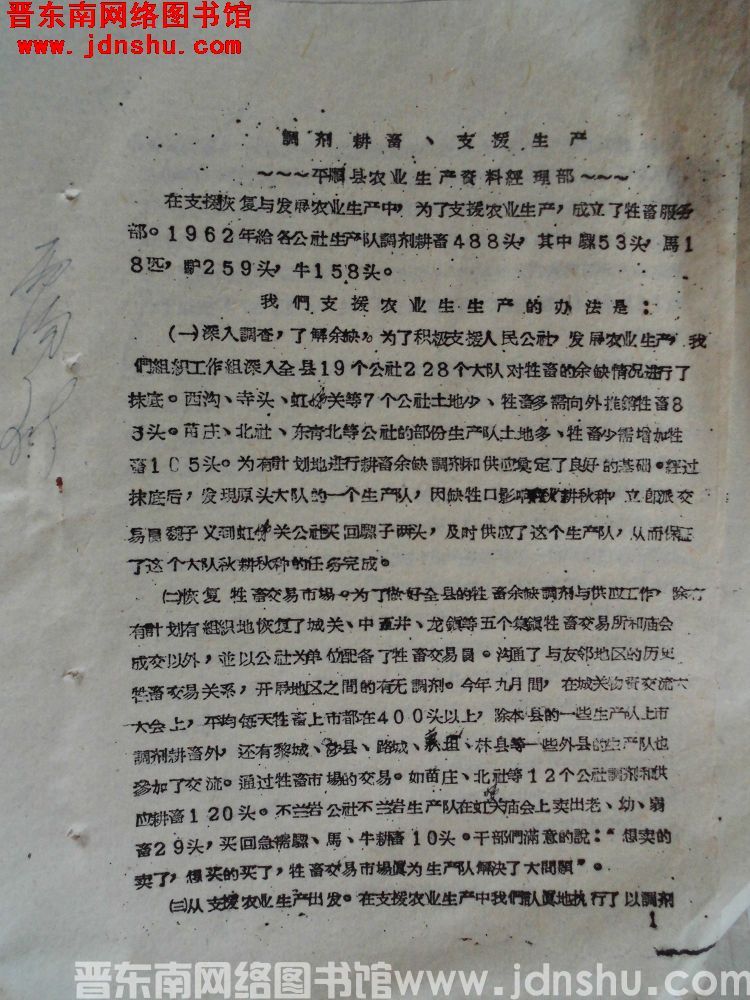 晋东南网络图书馆
www.jdnshu.com
調剂耕畜、支援生产
~~~平順县农业生产資料經理部~~~
在支援恢复与发展农业生产中,为了支援农业生产,成立了牲畜服务
部。1962年給各公社生产队調剂耕畜488头,其中騾53头,馬1
8匹,驴259头,牛158头。
我們支援农业生生产的办法是:
(一)深入調查,了解余缺。为了积极支援人民公社,发展农业生产,我
們組织工作組深入全县19个公社228个大队对牲畜的余缺情况进行了
抹底。西沟、寺头、虹梯关等7个公社土地少、牲畜多需向外推銷牲畜8
3头。苗庄、北社、东青北等公社的部份生产队土地多、牲畜少需增加牲
畜105头。为有計划地进行耕畜余缺調剂和供应奠定了良好的基础。經过
抹底后,发現原头大队的一个生产队,因缺牲口影响秋耕秋种,立即派交
易員 子义到虹梯关公社买回騾子两头,及时供应了这个生产队,从而保証
了这个大队秋耕秋种的任务完成。
(二)恢复牲畜交易市場。为了做好全县的牲畜余缺調剂与供应工作,除了
有計划有組织地恢复了城关、中五井、龙鎮等五个集鎮牲畜交易所和庙会
成交以外,並以公社为单位配备了牲畜交易員。沟通了与友邻地区的历史
牲畜交易关系,开展地区之間的有无調剂。今年九月間,在城关物資交流
大会上,平均每天牲畜上市都在400头以上,除本县的一些生产队上市
調剂耕畜外,还有黎城、涉县、路城、襄垣、林县等一些外县的生产队也
参加了交流。通过牲畜市場的交易。如苗庄、北社等12个公社調剂和供
应耕畜120头。不兰岩公社不兰岩生产队在虹梯关庙会上卖出老、幼、弱
畜29头,买回急需騾、馬、牛耕畜10头。干部們滿意的說:“想卖的
卖了,想买的买了,牲畜交易市場眞为生产队解决了大問題”。
(三)从支援农业生产出发。在支援农业生产中我們认眞地执行了以調剂
1
晋东南网络图书馆www.jdnshu.com